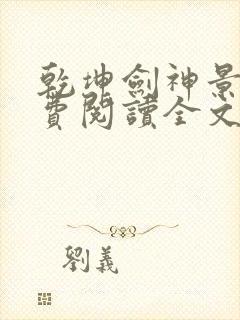 乾坤劍神景
費閱讀全文
劉義